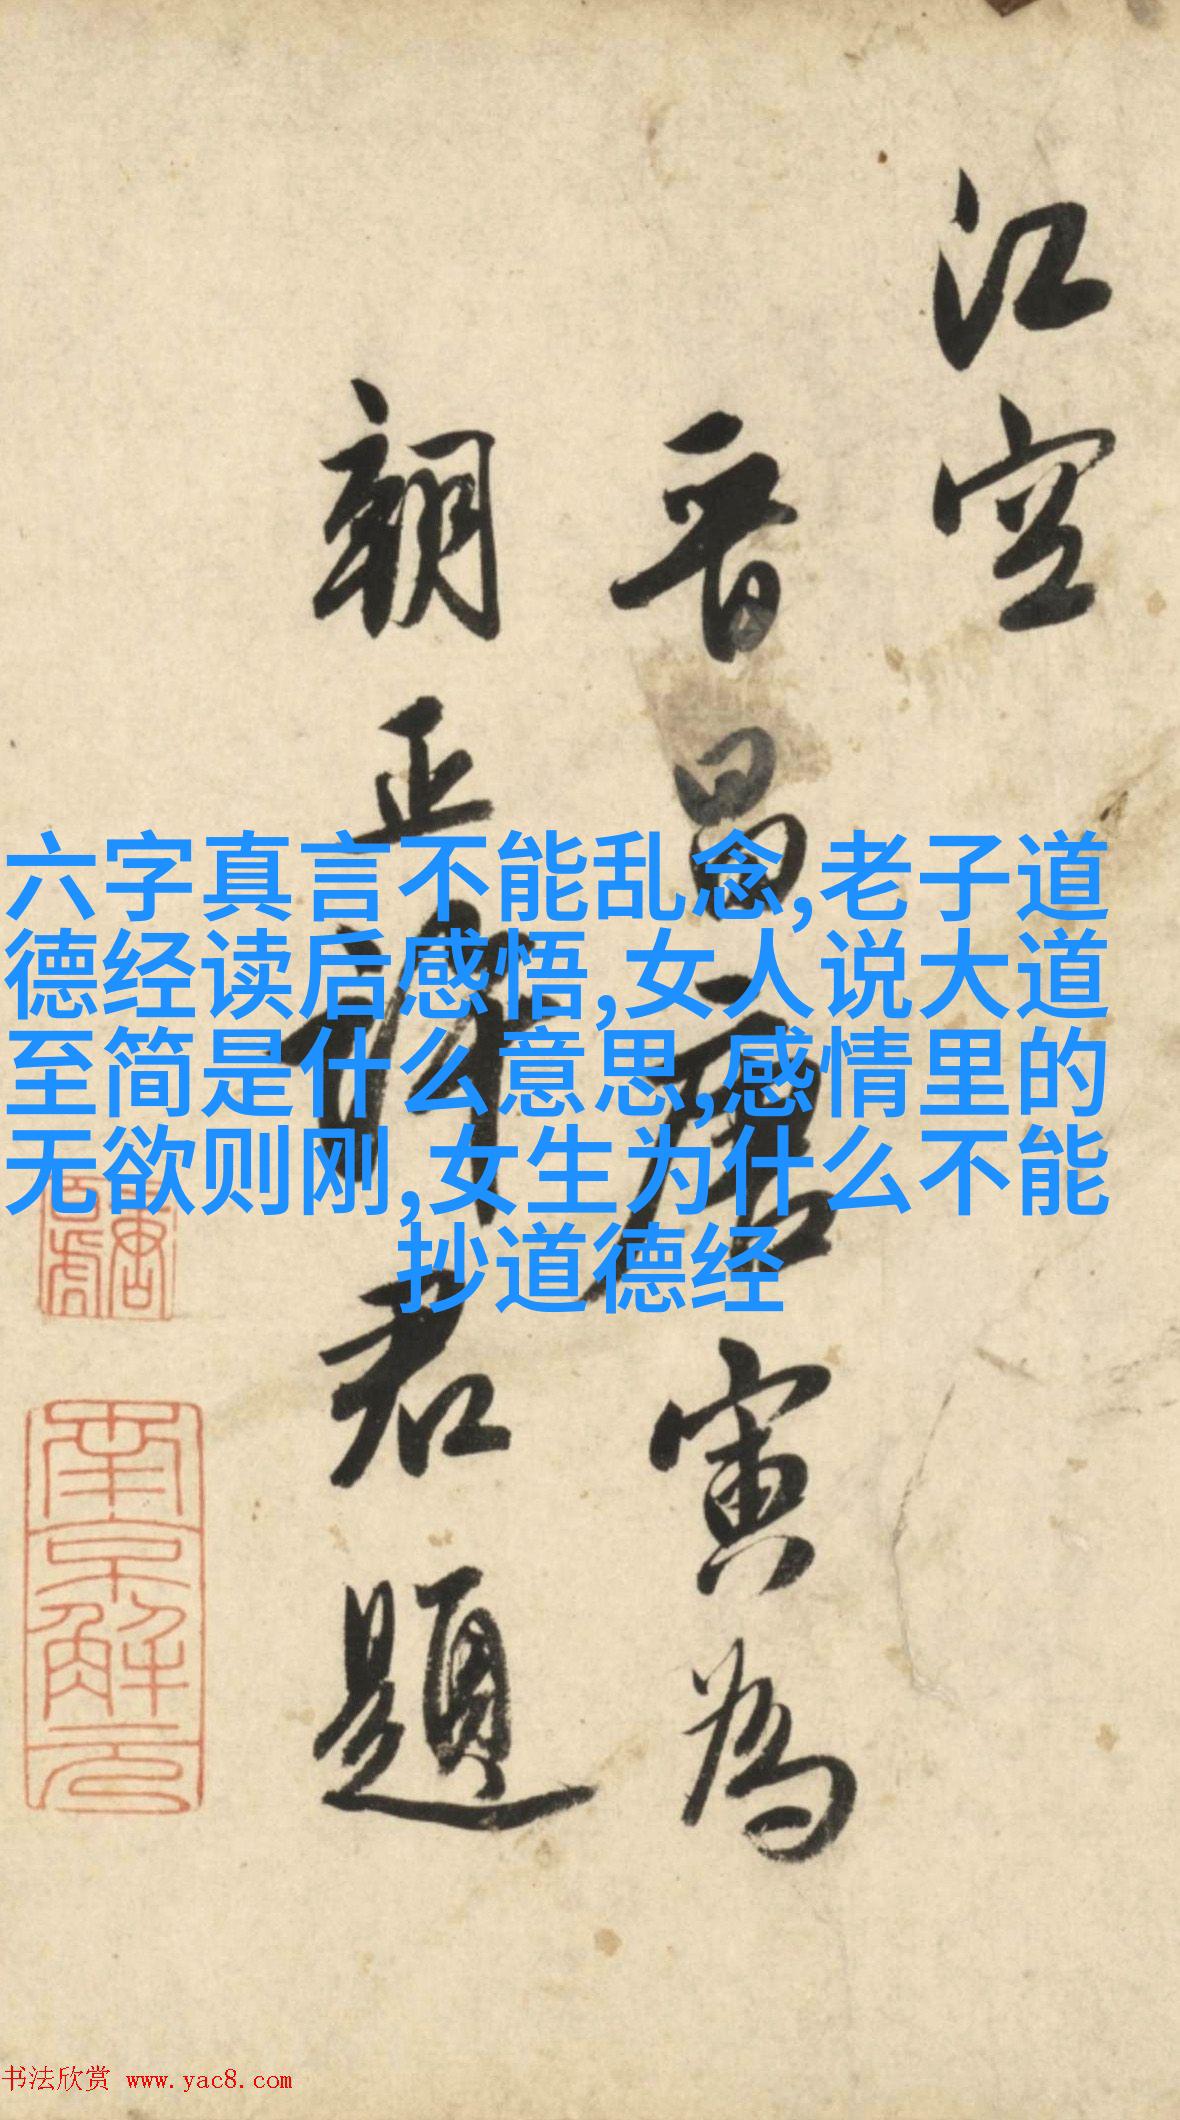 江空
晋昌唐寅為
朝正許君題
六字真言不能乱念,老子道
德经读后感悟,女人说大道
至简是什么意思,感情里的
无欲则刚,女生为什么不能
抄道德经
南京解元
书法欣赏 www.yac8.com